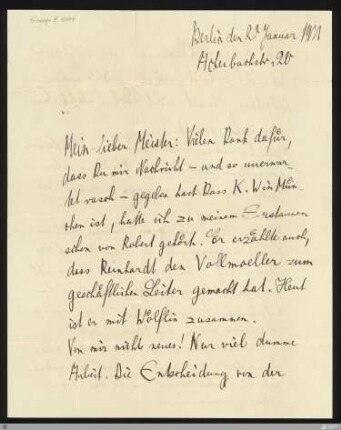 Berlin den 29 Januar 1921
Achenbachstr. 20
Mein lieben Meister: Vielen Dank dafür,
dass Du mir Nachricht – und so unerwar-
tet rasch – gegeben hast. Dass K. W. in Mün-
chen ist, hatte ich zu meinem Erstaunen
schon von Robert gehört. Er erzählte auch,
dass Reinhardt den Vollmoeller zum
geschäftlichen Leiter gemacht hat. Heut
ist er mit Wölflin zusammen.
Von mir nicht neues! Nur viel dumme
Arbeit. Die Entscheidung von der